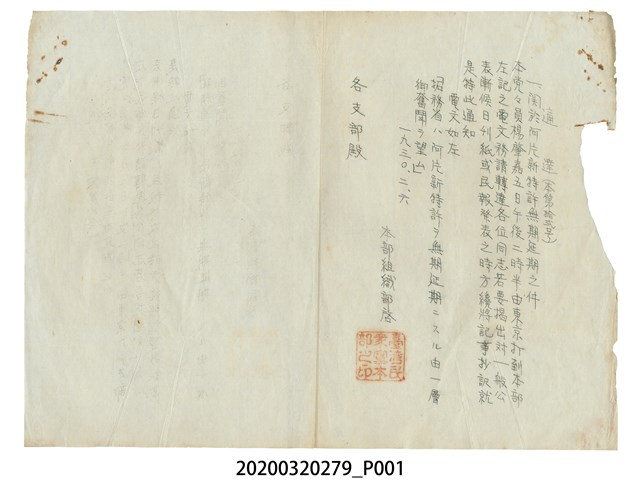 通達(本第拾貳号)
一、關於阿片新特許無期延期之件
本党々員楊肇嘉五日午後二時半由東京打到本部
左記之電文務請轉達各位同志若要提出対一般公
表漸候日刊紙或民報發表之時方續將記事抄訳就
是特此通知
電文如左
「拓務省ハ阿片新特許ヲ無期延期ニスル由一層
御奮鬪ヲ望ム」
一九三〇、二、六
本部組織部啓
各支部殿
臺灣民
衆黨本
部之印
20200320279_P001